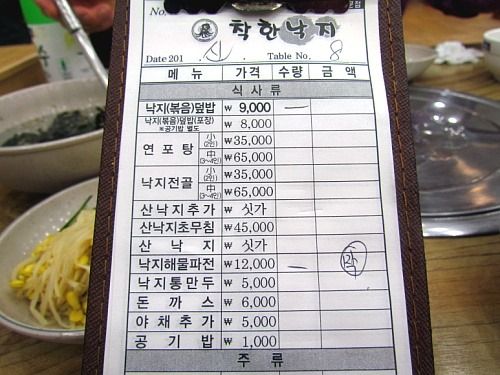 No.
착한낙지
Date 201 . . Table No. 8
메 뉴 가격 수량 금 액
식 사 류
낙지(볶음)덮밥 ₩ 9,000 —
낙지(볶음)덮밥(포장) ※공기밥 별도 ₩ 8,000
연 포 탕 小(2인) ₩35,000
中(3~4인) ₩65,000
낙지전골 小(2인) ₩35,000
中(3~4인) ₩65,000
산낙지추가 ₩ 싯가
산낙지초무침 ₩45,000
산 낙 지 ₩ 싯가
낙지해물파전 ₩12,000 —
낙지통만두 ₩ 5,000
돈 까 스 ₩ 6,000
야채추가 ₩ 5,000
공 기 밥 ₩ 1,000
주 류